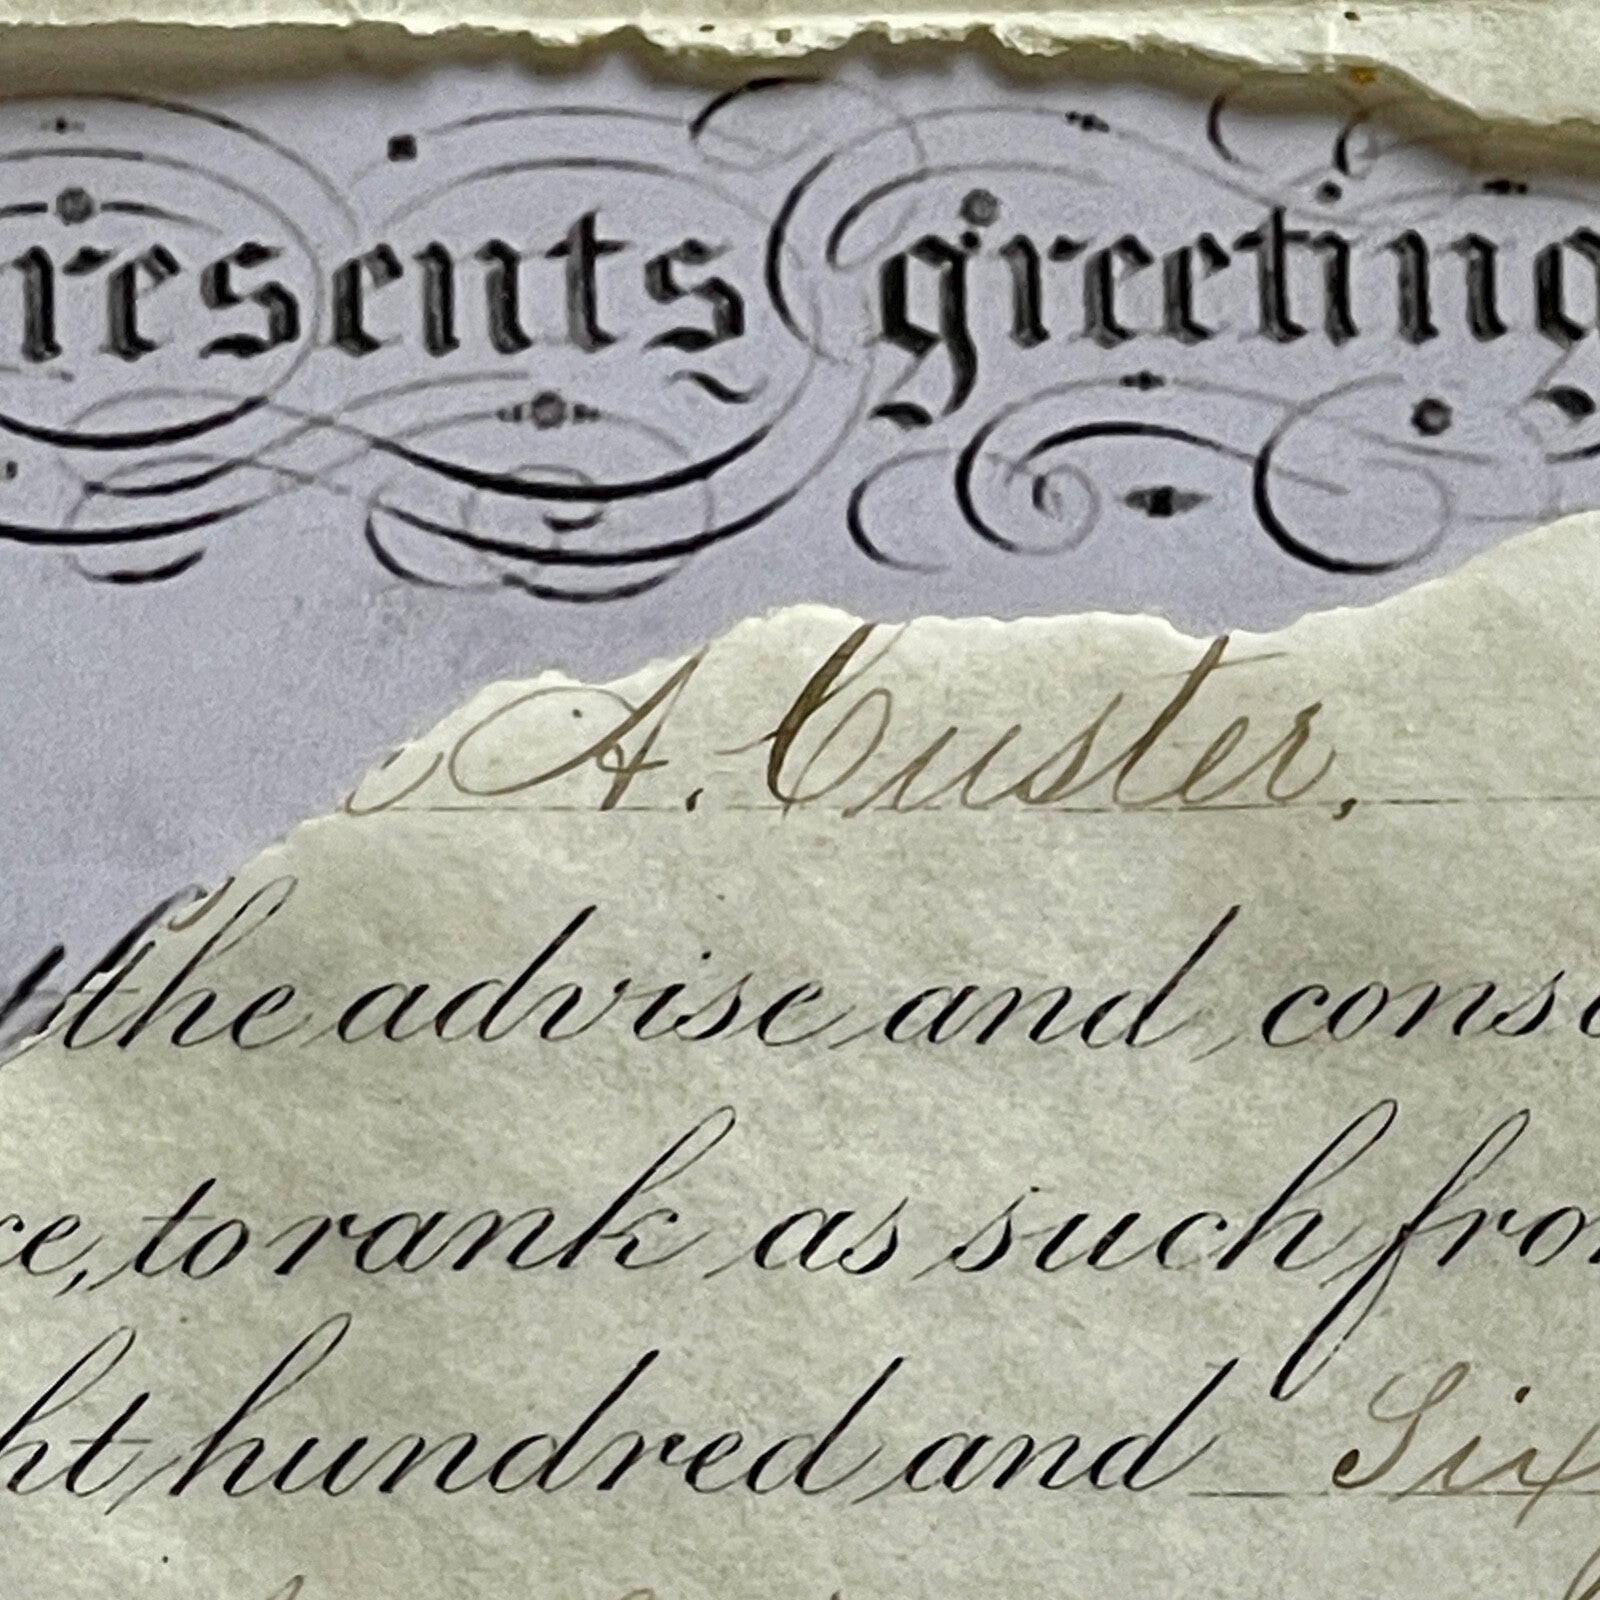 resents greeting
A. Custer,
the advise and conse
ce, to rank as such from
ht hundred and Six